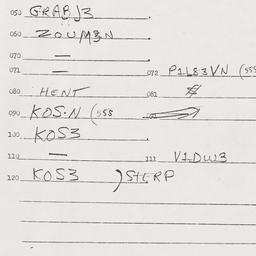 050 GRABJ3
060 ZOUM3N
070 —
071 — 072 P1L83VN (555
080 HENT 081
090 KOS·N (558
100 KOS3
110 — 111 V1DW3
120 KOS3 )SHERP